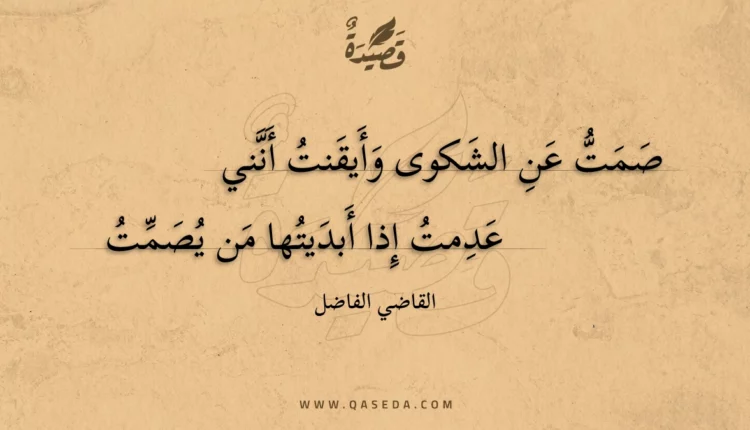 قَصِيدَةٌ
صَمَتُّ عَنِ الشَكوى وَأَيقَنتُ أَنَّني
عَدِمتُ إِذا أَبدَيتُها مَن يُصَمِّتُ
القاضي الفاضل
WWW.QASEDA.COM